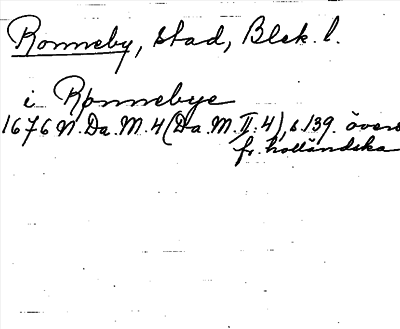 Ronneby, stad, Blek. l.
i Rønnebye
1676 N. Da. M. 4 (Da. M. II: 4), s. 139. övers
fr. holländska